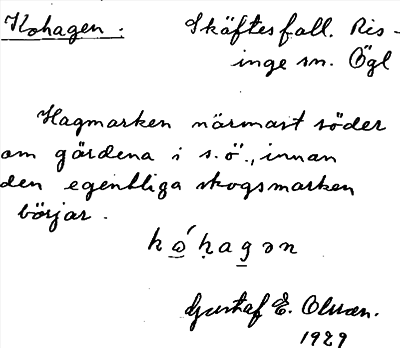 Kohagen. Skäftesfall. Ris-
inge sn. Ögl
Hagmarken närmast söder
om gärdena i s.ö., innan
den egentliga skogsmarken
börjar.
Gustaf E. Olsson.
1929